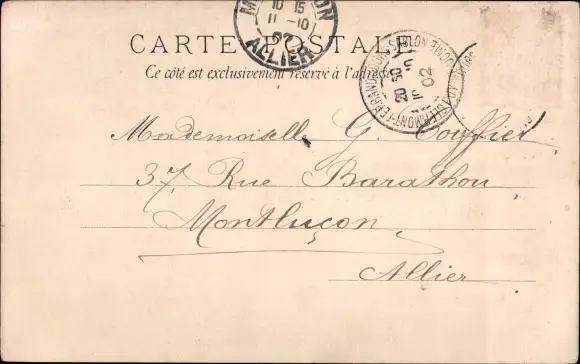 CARTE POSTALE
Ce côté est exclusivement réservé à l'adresse
10 15
11 -10
02
ALLIER
20 30
02
Mademoiselle G.
37 Rue Barathon
Montluçon
Allier